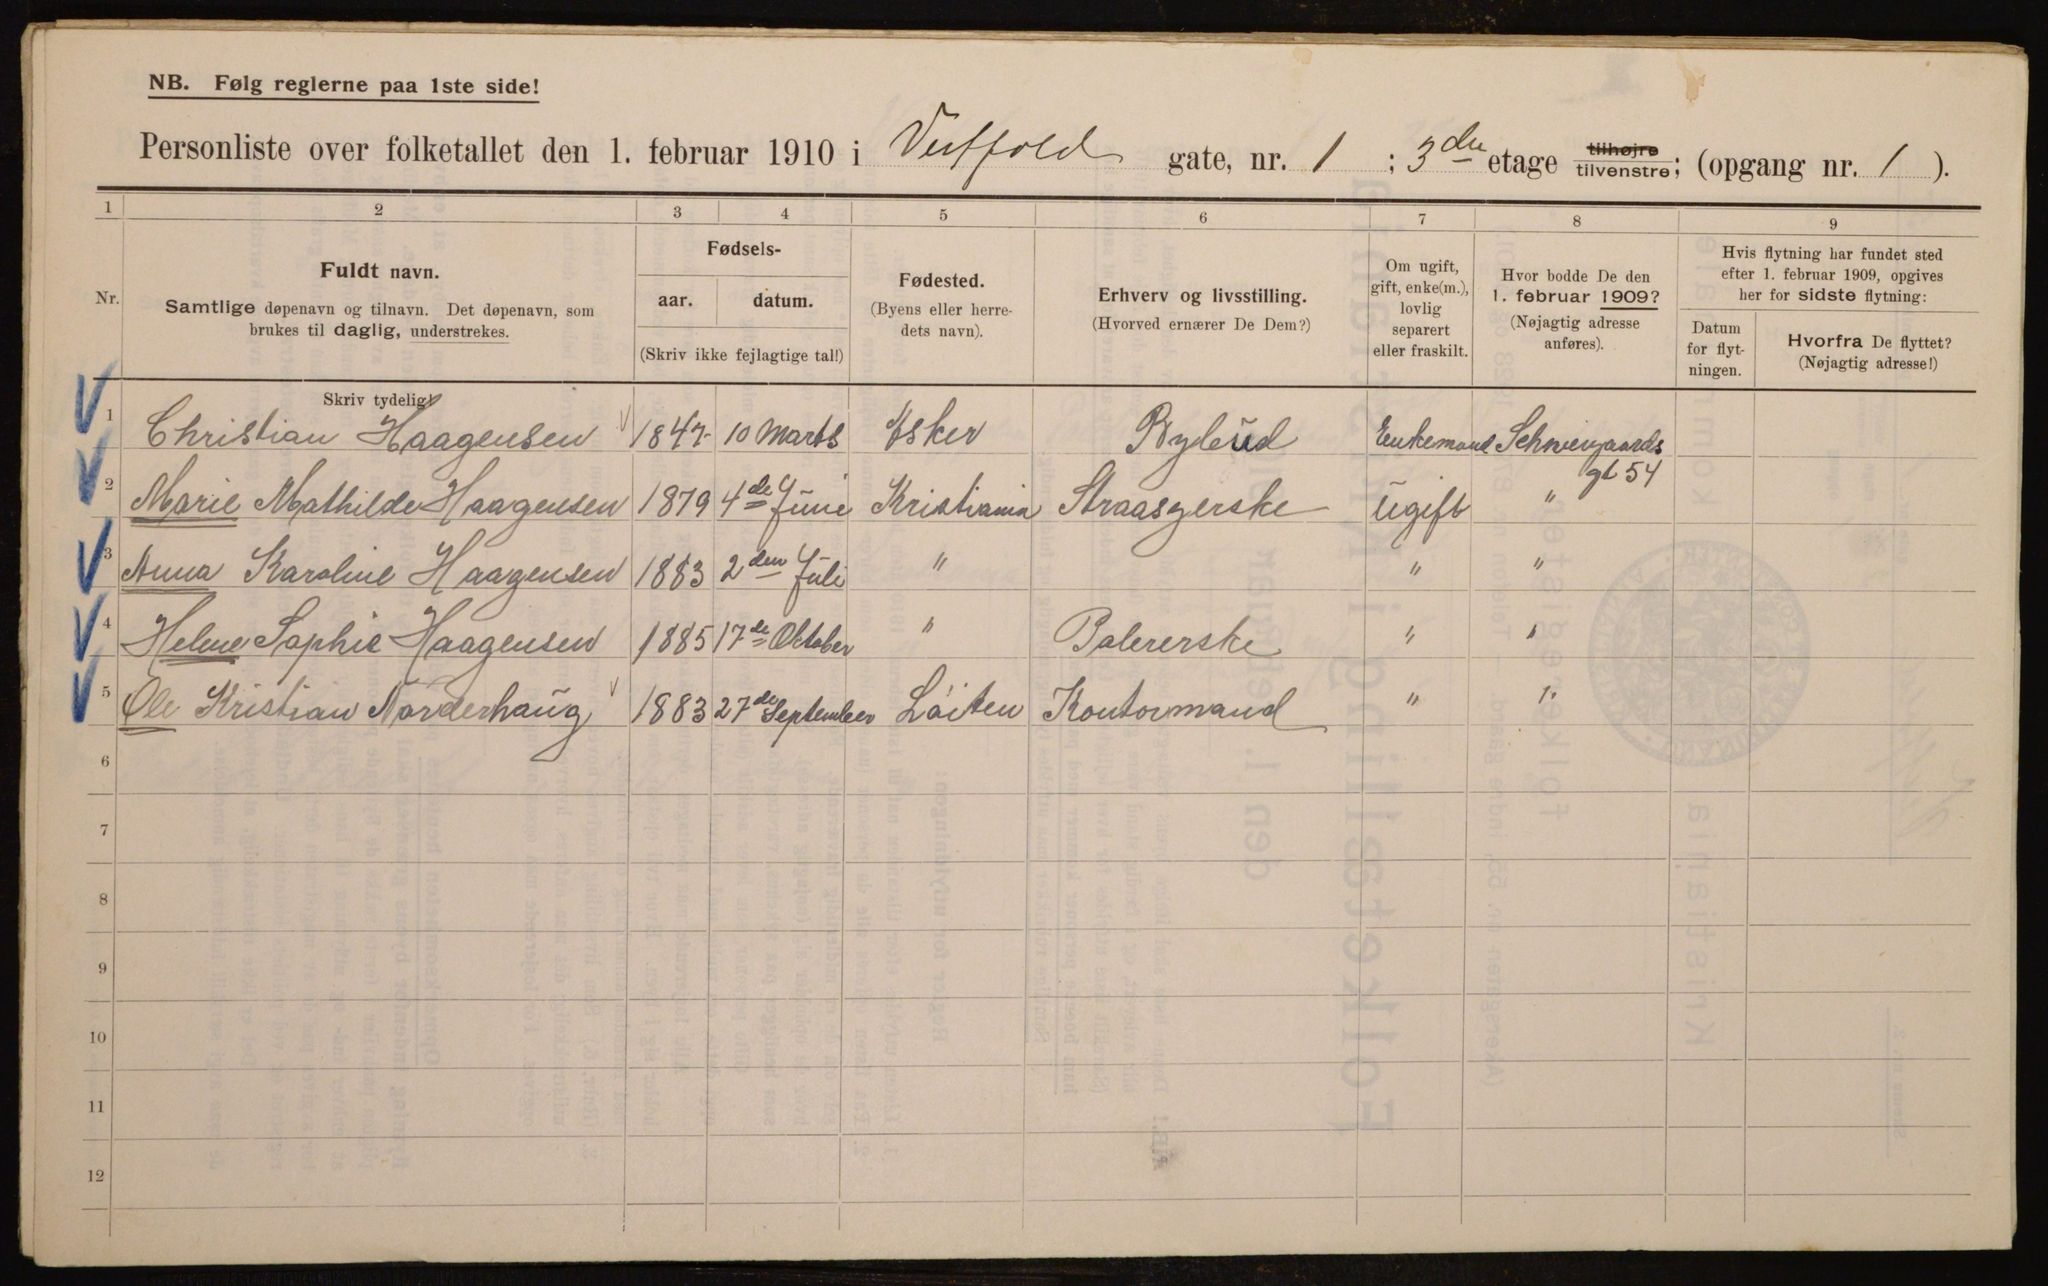 NB. Følg reglerne paa 1ste side!
Personliste over folketallet den 1. februar 1910 i Vestfold gate, nr. 1 ; 3die etage tilhøjre tilvenstre; (opgang nr. 1 ).
1 2 3 4 5 6 7 8 9
Nr.
Fuldt navn.
Samtlige døpenavn og tilnavn. Det døpenavn, som
brukes til daglig, understrekes.
Fødsels-
aar. datum.
(Skriv ikke fejlagtige tal!)
Fødested.
(Byens eller herre-
dets navn).
Erhverv og livsstilling.
(Hvorved ernærer De Dem?)
Om ugift,
gift, enke(m.),
lovlig
separert
eller fraskilt.
Hvor bodde De den
1. februar 1909?
(Nøjagtig adresse
anføres).
Hvis flytning har fundet sted
efter 1. februar 1909, opgives
her for sidste flytning:
Datum
for flyt-
ningen.
Hvorfra De flyttet?
(Nøjagtig adresse!)
Skriv tydelig!
1 Christian Haagensen 1847 10 Marts Asker Bybud Enkemand Schweigaards
gt 54
2 Marie Mathilde Haagensen 1879 4de Juni Kristiania Straasyerske ugift "
3 Anna Karoline Haagensen 1883 2den Juli " " "
4 Helene Sophie Haagensen 1885 17de Oktober " Polererske " "
5 Ole Kristian Norderhaug 1883 27de September Löiten Kontormand " "
6
7
8
9
10
11
12